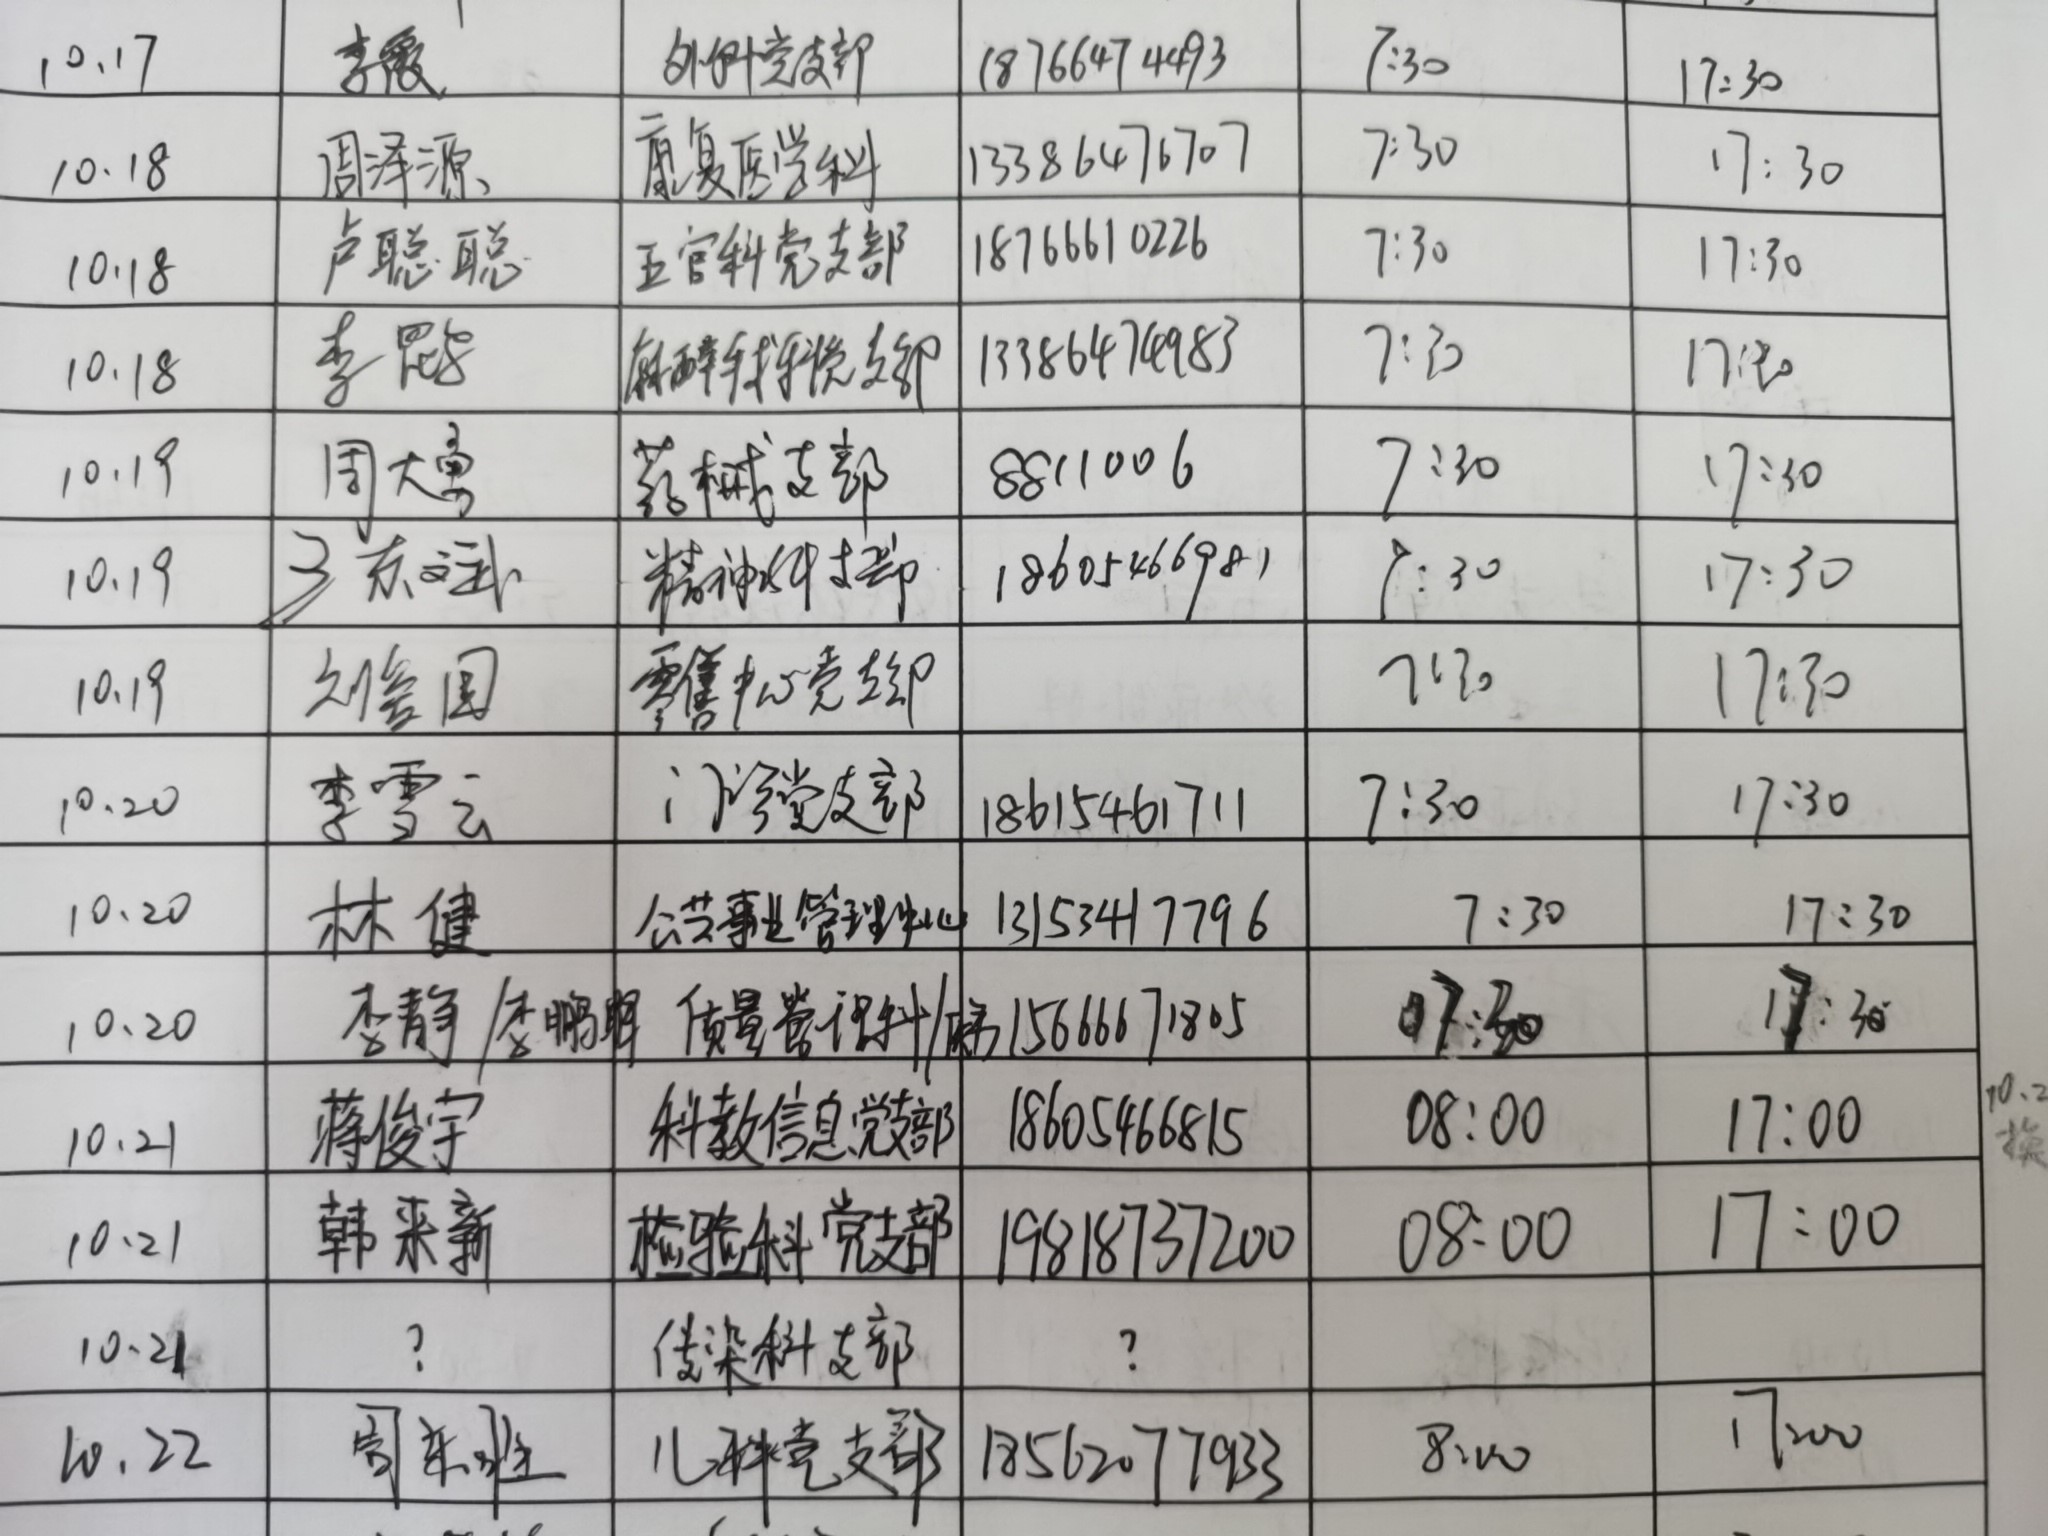 10.17 李霞 外科党支部 18766474493 7:30 17:30
10.18 周泽源 康复医学科 13386476707 7:30 17:30
10.18 卢聪聪 五官科党支部 18766610226 7:30 17:30
10.18 李 麻醉手术科党支部 13386474983 7:30 17:30
10.19 周大勇 药械支部 8811006 7:30 17:30
10.19 文武 精神科支部 18605466981 7:30 17:30
10.19 刘国 零售中心党支部 7:30 17:30
10.20 李雪云 门诊党支部 18615461711 7:30 17:30
10.20 林健 公共事业管理中心 13153417796 7:30 17:30
10.20 李静/李鹏 质量管理科/ 15666671805 07:30 17:30
10.21 蒋俊宇 科教信息党支部 18605466815 08:00 17:00
10.2
换
10.21 韩来新 检验科党支部 19818737200 08:00 17:00
10.21 ? 传染科支部 ?
10.22 周东 儿科党支部 18562077933 8:00 17:00